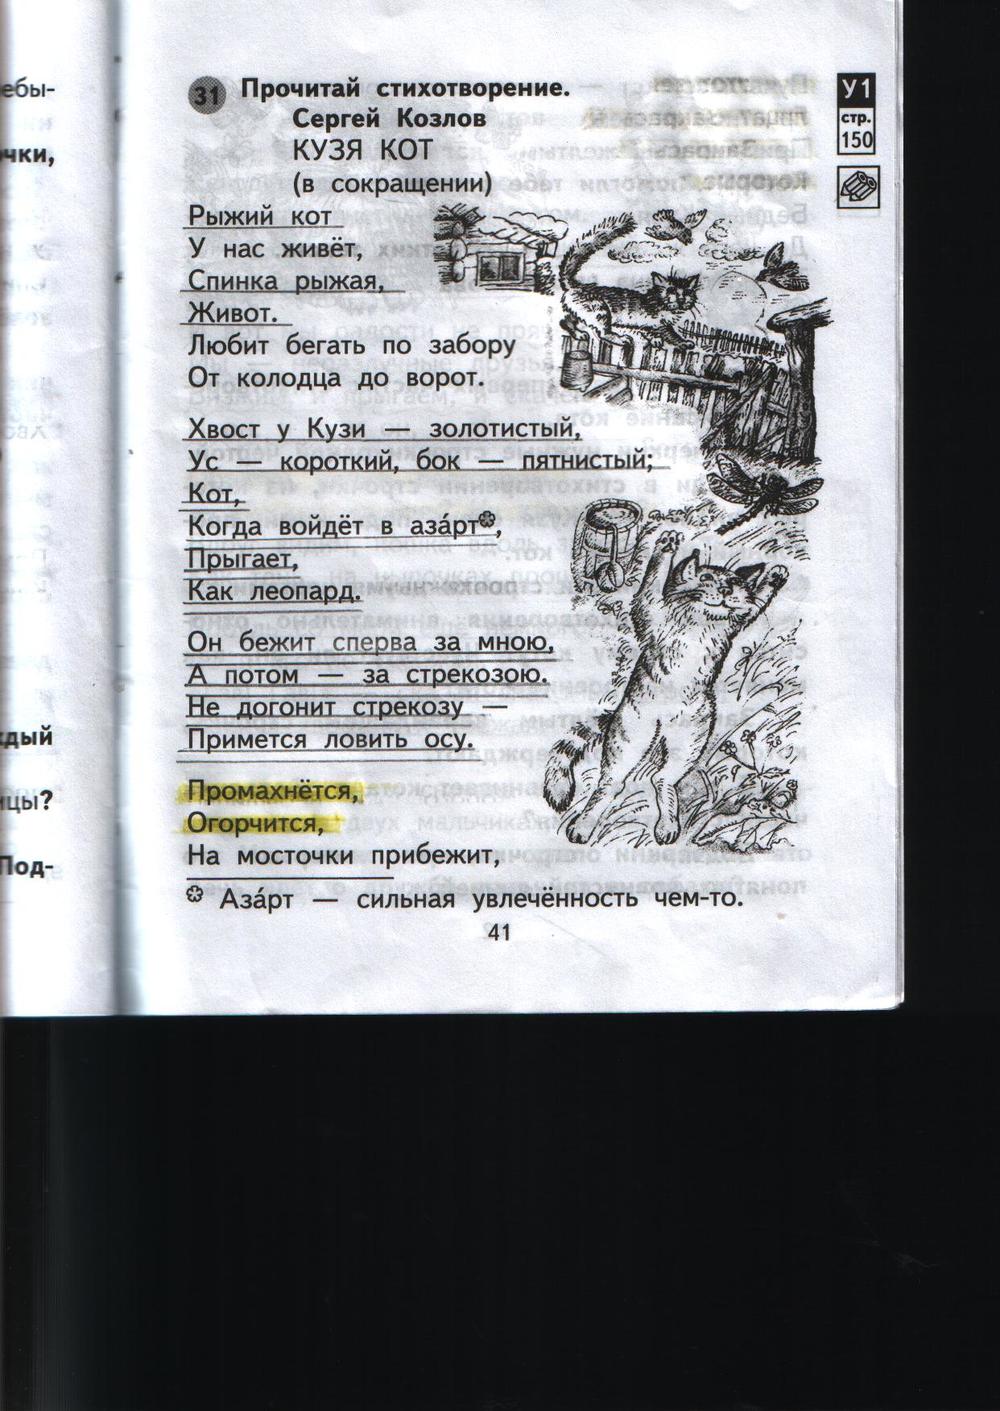 ебы-
очки,
ждый
ицы?
Под-
31 Прочитай стихотворение.
Сергей Козлов
КУЗЯ КОТ
(в сокращении)
Рыжий кот
У нас живёт,
Спинка рыжая,
Живот.
Любит бегать по забору
От колодца до ворот.
Хвост у Кузи — золотистый,
Ус — короткий, бок — пятнистый;
Кот,
Когда войдёт в аза́рт❁,
Прыгает,
Как леопард.
Он бежит сперва за мною,
А потом — за стрекозою.
Не догонит стрекозу —
Примется ловить осу.
Промахнётся,
Огорчится,
На мосточки прибежит,
❁ Аза́рт — сильная увлечённость чем-то.
41
У1
стр.
150